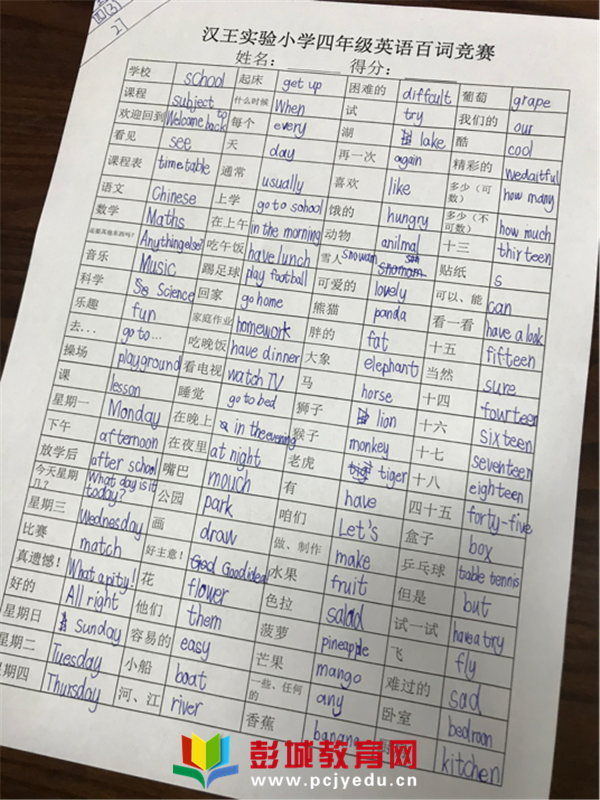 27
汉王实验小学四年级英语百词竞赛
姓名： 得分：
学校 school 起床 get up 困难的 diffcult 葡萄 grape
课程 subject 什么时候 When 试 try 我们的 our
欢迎回到 Welcome back to 每个 every 湖 lake 酷 cool
看见 see 天 day 再一次 again 精彩的 wedaitful
课程表 timetable 通常 usually 喜欢 like 多少（可数） how many
语文 Chinese 上学 go to school 饿的 hungry 多少（不可数） how much
数学 Maths 在上午 in the morning 动物 anilmal 十三 thirteen
还要其他东西吗？ Anything else? 吃午饭 have lunch 雪人 Snowman 贴纸 s
音乐 Music 踢足球 play football 可爱的 lovely 可以、能 can
科学 Science 回家 go home 熊猫 panda 看一看 have a look
乐趣 fun 家庭作业 homework 胖的 fat 十五 fifteen
去… go to… 吃晚饭 have dinner 大象 elephant 当然 sure
操场 playground 看电视 watch TV 马 horse 十四 fourteen
课 lesson 睡觉 go to bed 狮子 lion 十六 sixteen
星期一 Monday 在晚上 in the evening 猴子 monkey 十七 seventeen
下午 afternoon 在夜里 at night 老虎 tiger 十八 eighteen
放学后 after school 嘴巴 mouch 有 have 四十五 forty-five
今天星期几？ What day is it today? 公园 park 咱们 Let's 盒子 box
星期三 Wednesday 画 draw 做、制作 make 乒乓球 table tennis
比赛 match 好主意！ Good idea! 水果 fruit 但是 but
真遗憾！ What a pity! 花 flower 色拉 salad 试一试 have a try
好的 All right 他们 them 菠萝 pineapple 飞 fly
星期日 Sunday 容易的 easy 芒果 mango 难过的 sad
星期二 Tuesday 小船 boat 一些、任何的 any 卧室 bedroon
星期四 Thursday 河、江 river 香蕉 banana kitchen
彭城教育网
www.pcjyedu.cn